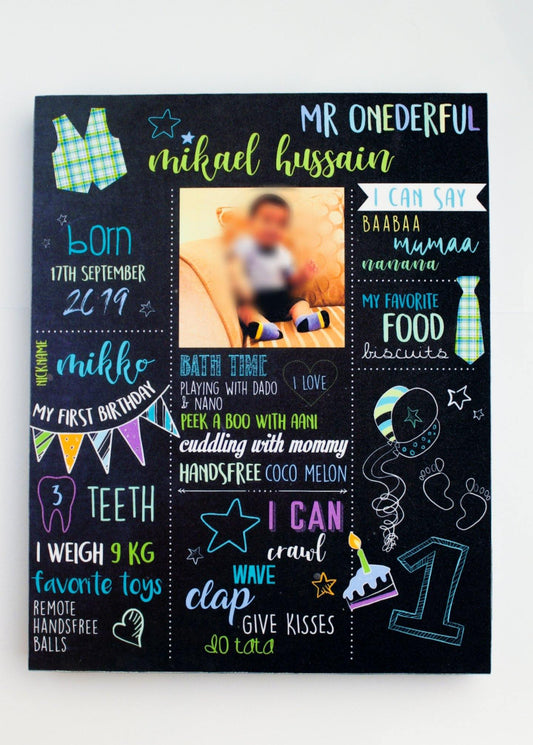 MR ONEDERFUL
mikael hussain
born
17TH SEPTEMBER
2019
NICKNAME
mikko
MY FIRST BIRTHDAY
3
TEETH
I WEIGH 9 KG
favorite toys
REMOTE
HANDSFREE
BALLS
BATH TIME
PLAYING WITH DADO
& NANO
I LOVE
PEEK A BOO WITH AANI
cuddling with mommy
HANDSFREE COCO MELON
I CAN
crawl
WAVE
clap
GIVE KISSES
DO tata
I CAN SAY
BAABAA
mumaa
nanana
MY FAVORITE
FOOD
biscuits
1